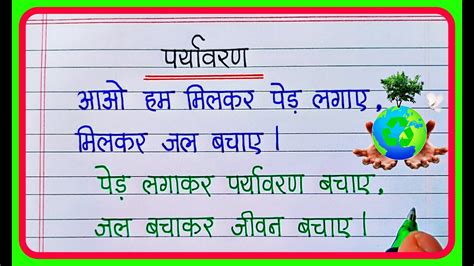 पर्यावरण
आओ हम मिलकर पेड़ लगाए,
मिलकर जल बचाए।
पेड़ लगाकर पर्यावरण बचाए,
जल बचाकर जीवन बचाए।